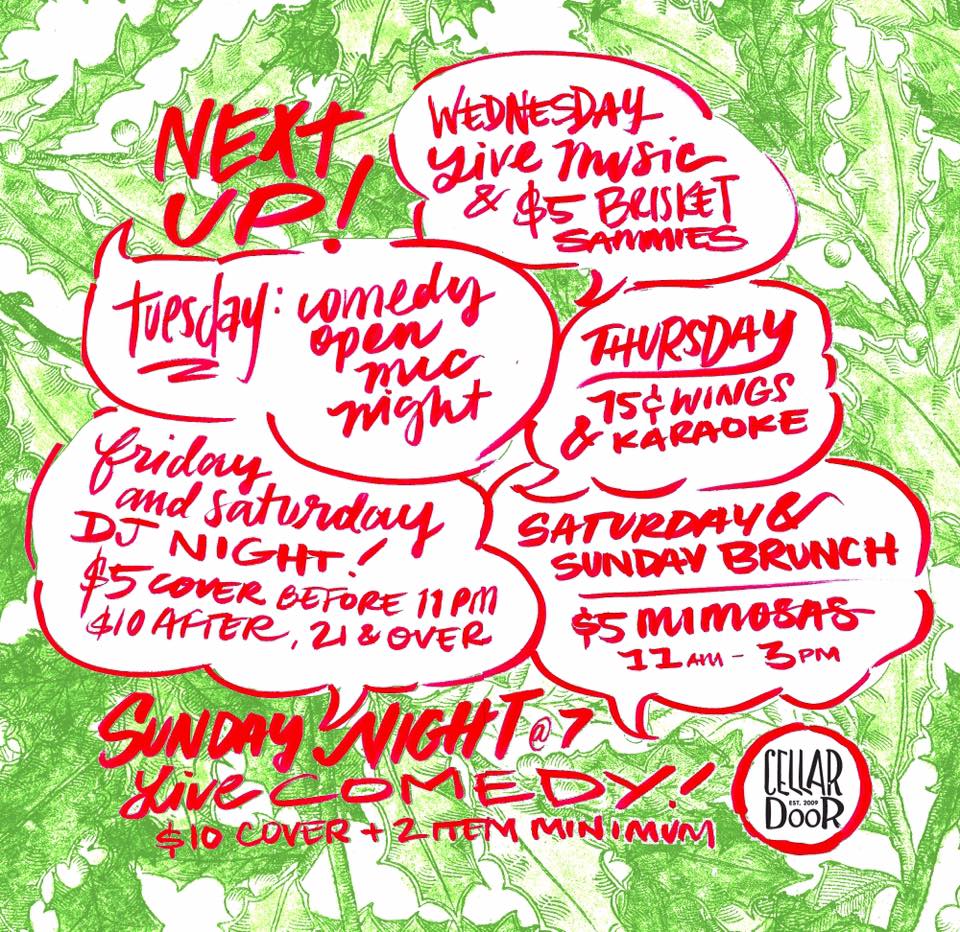 NEXT
UP!
tuesday: comedy
open
mic
night
WEDNESDAY
Live music
& $5 BRISKET
SAMMIES
THURSDAY
75¢ WINGS
& KARAOKE
friday
and saturday
DJ NIGHT!
$5 COVER BEFORE 11 PM
$10 AFTER, 21 & OVER
SATURDAY &
SUNDAY BRUNCH
$5 MIMOSAS
11 AM - 3 PM
SUNDAY NIGHT @ 7
Live COMEDY!
$10 COVER + 2 ITEM MINIMUM
CELLAR
EST. 2009
DOOR